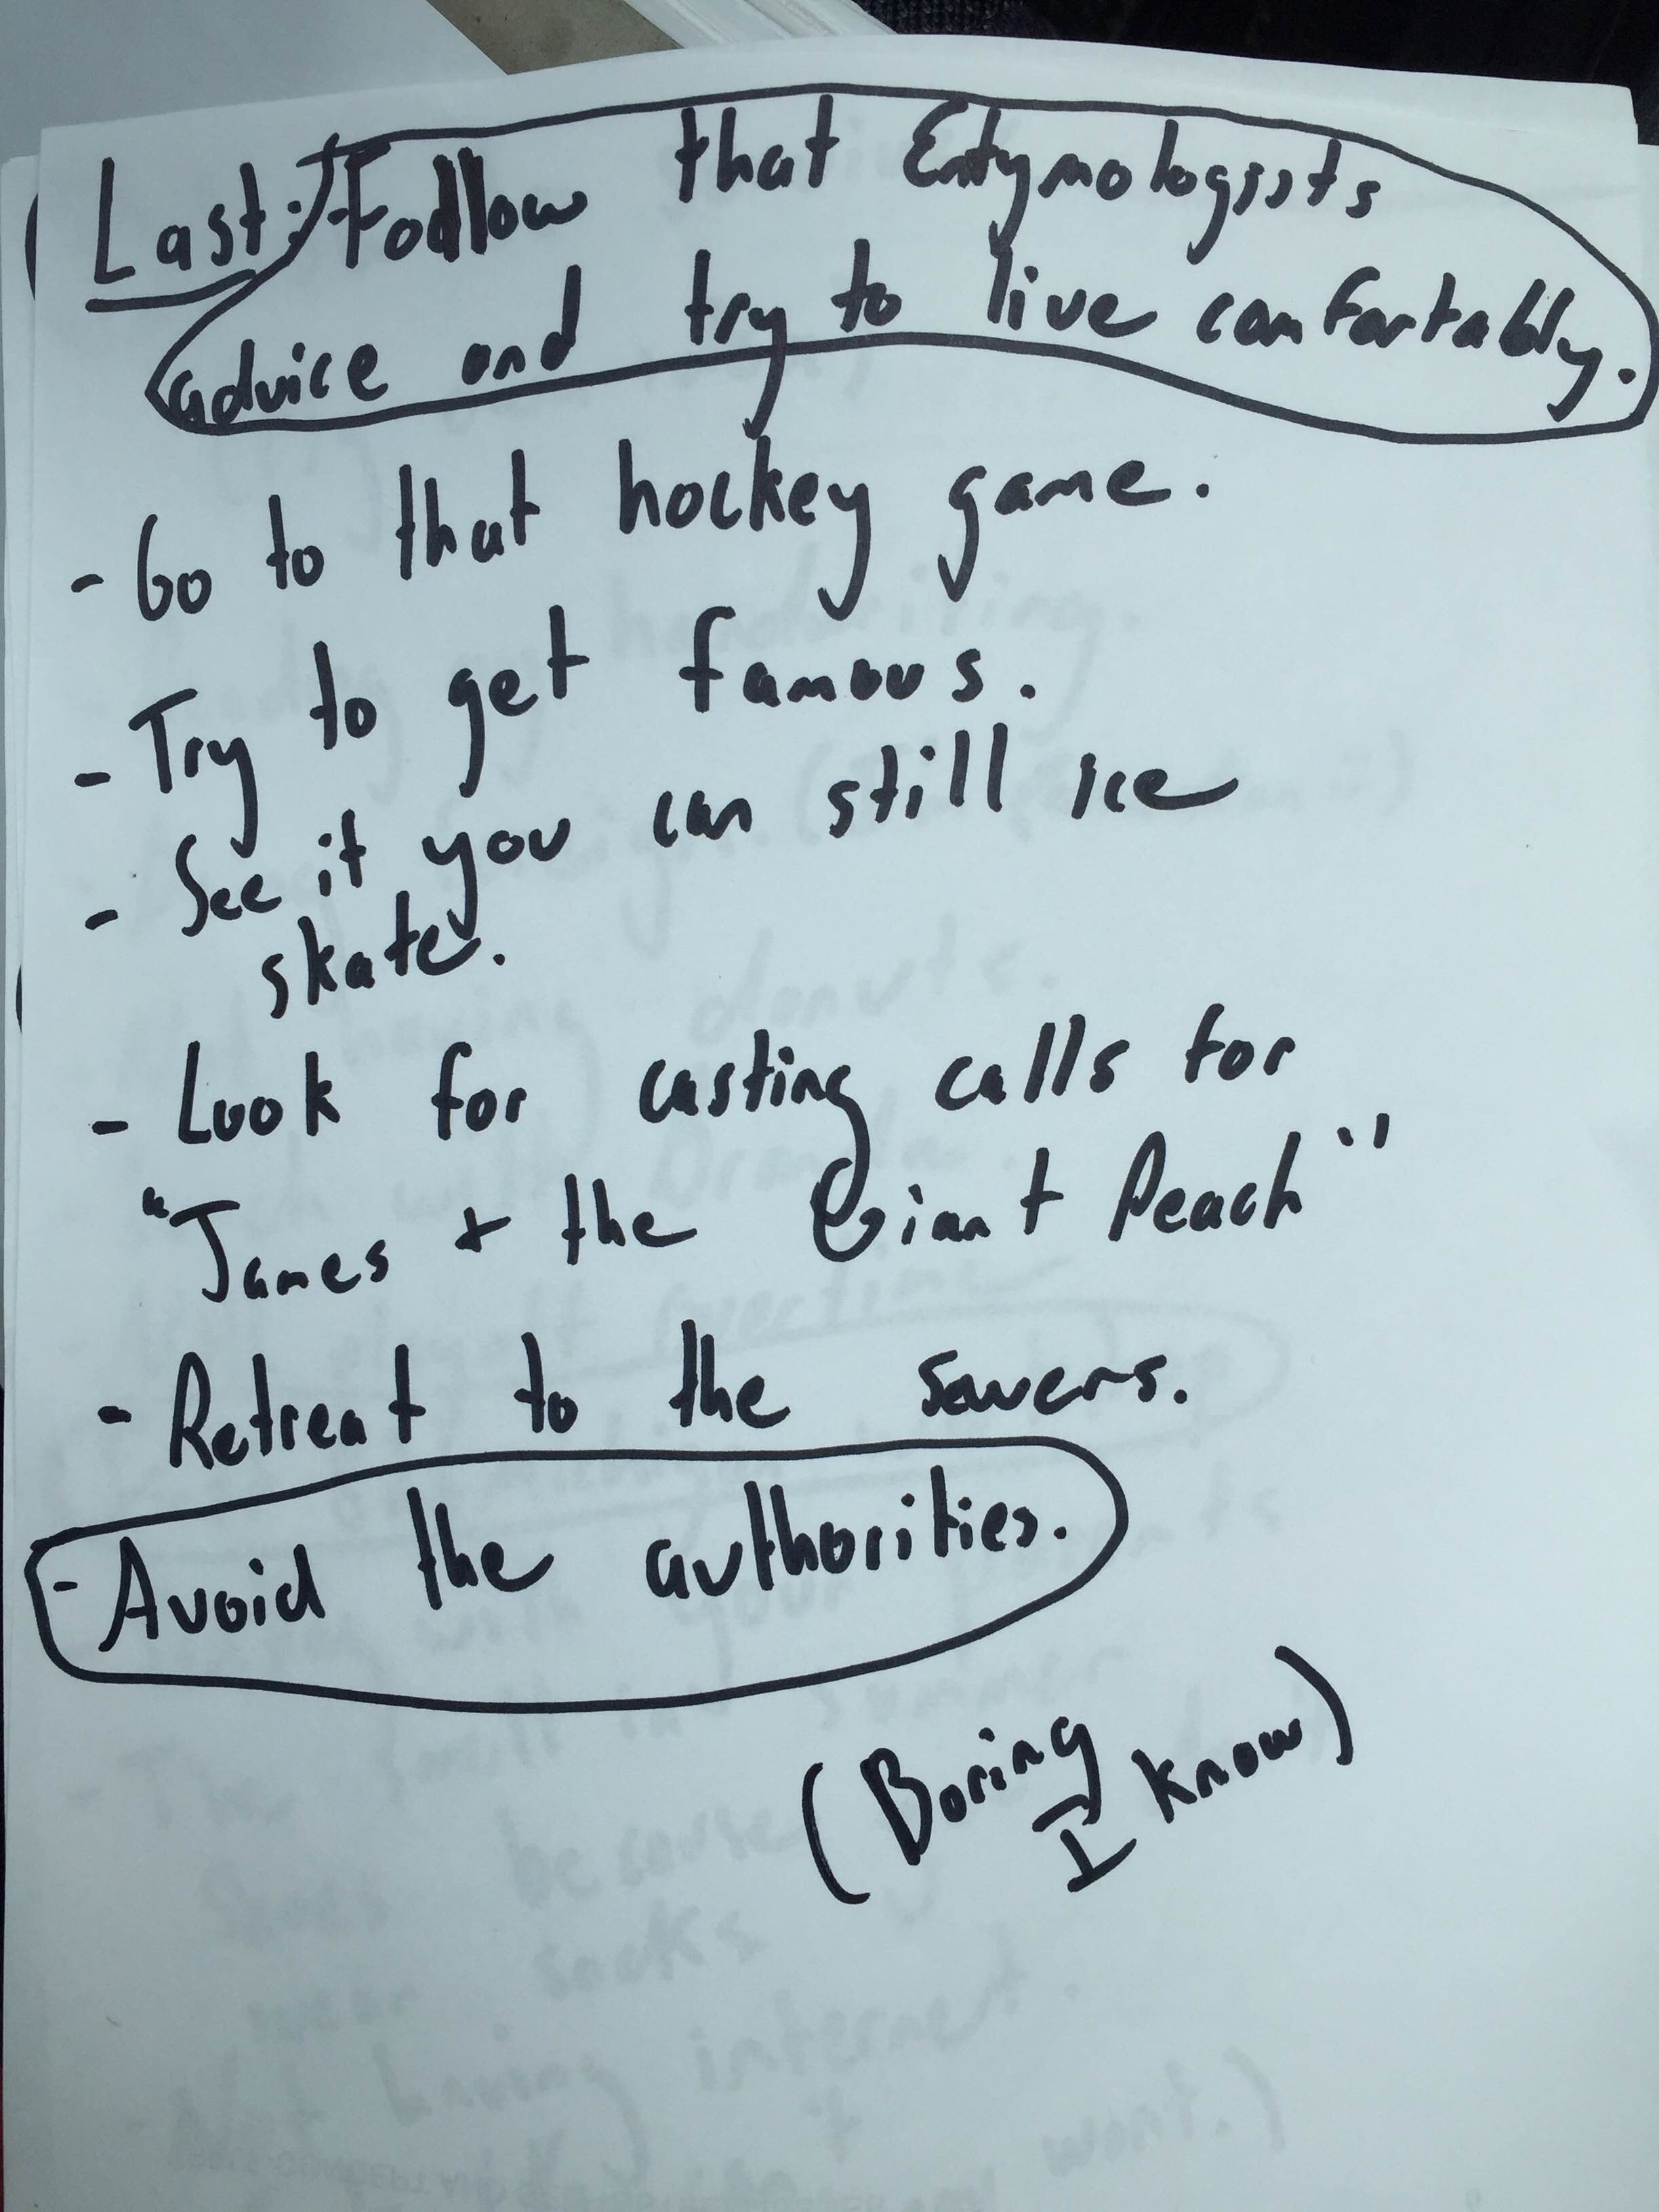 Last: Follow that Entymologists
advice and try to live comfortably.
- Go to that hockey game.
- Try to get famous.
- See if you can still ice
skate.
- Look for casting calls for
"James + the Giant Peach"
- Retreat to the sewers.
- Avoid the authorities.
(Boring
I know)